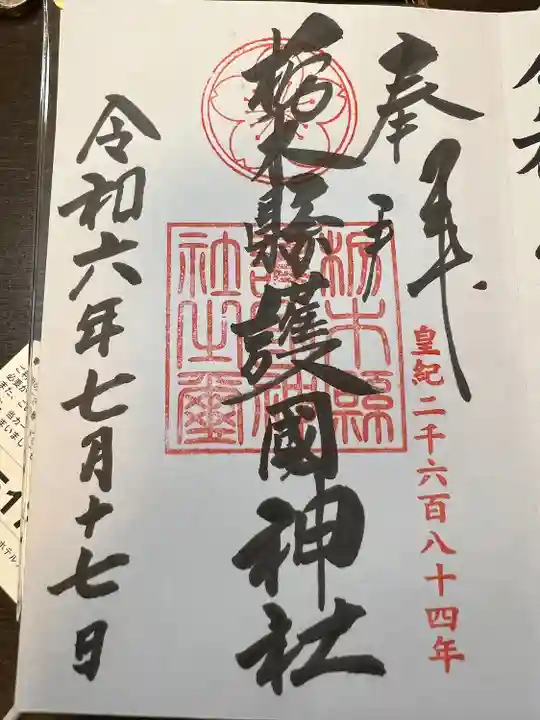 奉拜
皇紀二千六百八十四年
栃木縣護國神社
栃木縣
護國神
社之璽
令和六年七月十七日